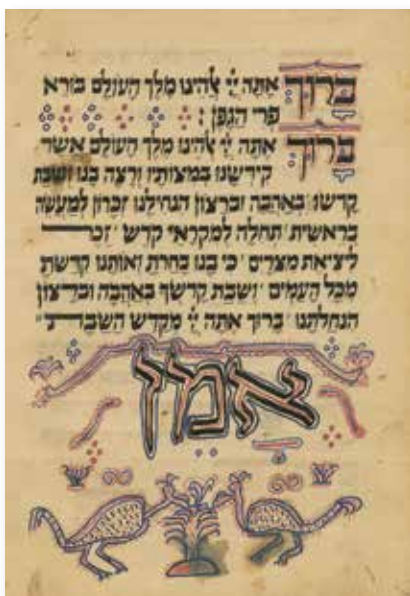 ברוך אתה יי אלהינו מלך העולם בורא
פרי הגפן :
ברוך אתה יי אלהינו מלך העולם אשר
קידשנו במצותיו ורצה בנו ושבת
קדשו באהבה וברצון הנחילנו זכרון למעשה
בראשית תחלה למקראי קדש זכר
ליציאת מצרים כי בנו בחרת ואותנו קדשת
מכל העמים ושבת קדשך באהבה וברצון
הנחלתנו ברוך אתה יי מקדש השבת
אמן